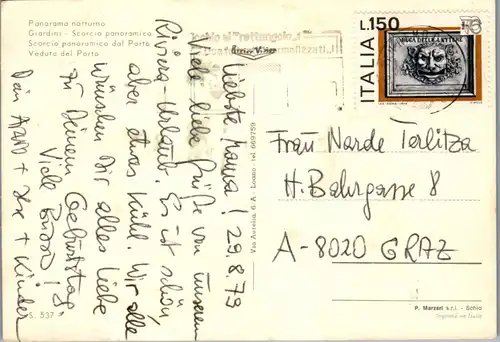 Panorama notturno
Giardini - Scorcio panoramico
Scorcio panoramico dal Porto
Veduta del Porto
L.150
BUCA DELLE LETTERE
ITALIA
"rettangolo"
Liebste Mama! 29.8.79
Viele liebe Grüße von unserem
Riviera-Urlaub. Es ist schön,
aber etwas kühl. Wir alle
wünschen Dir alles Liebe
zu Deinem Geburtstag!
Viele Bussi!
+ Kinder
S. 537
Via Aurelia, 6-A - Loano - Tel. 669750
Frau Narde Terlitza
H. Bahrgasse 8
A-8020 GRAZ
P. Marzari s.r.l. - Schio